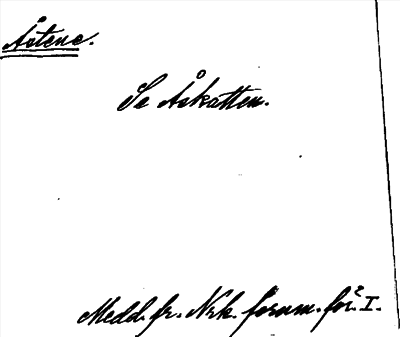 Åstene.
Se Åskatten.
Medd. fr. Nrk. fornm. for. I.